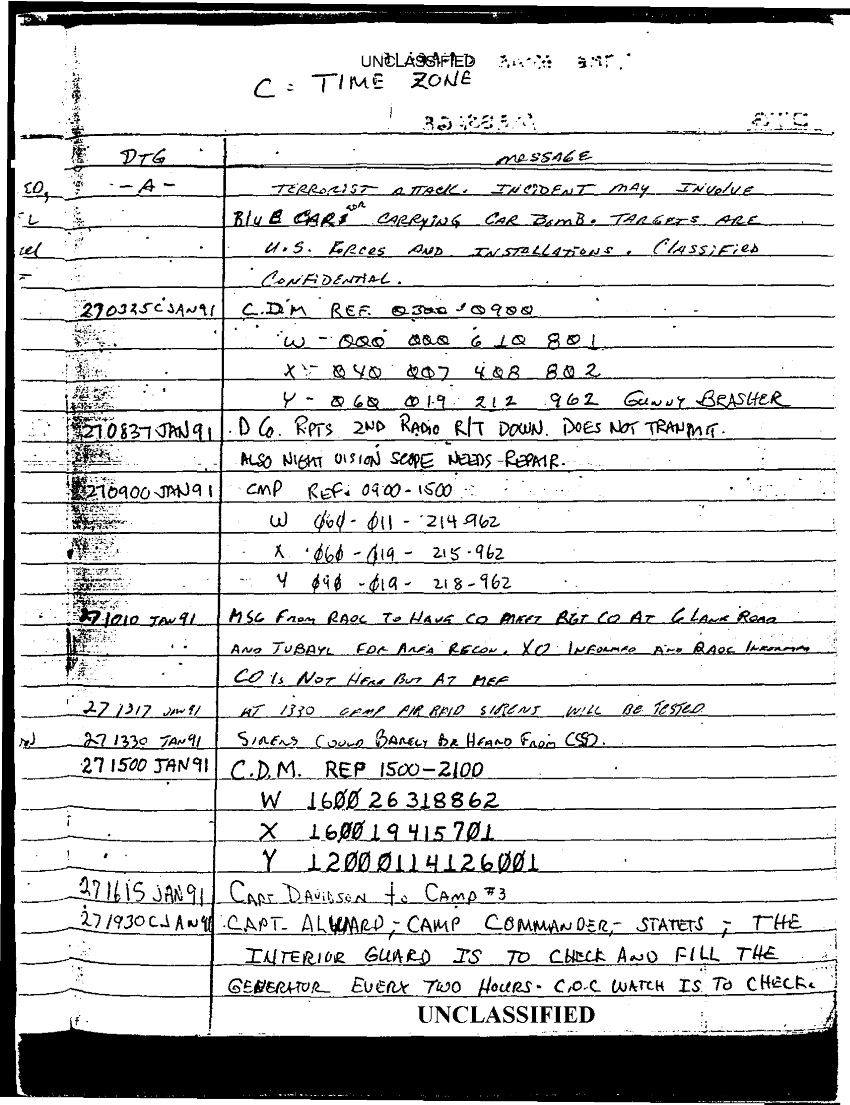 UNCLASSIFIED
C = TIME ZONE
DTG MESSAGE
- A - TERRORIST ATTACK. INCIDENT MAY INVOLVE
BLUE CARS FOR CARRYING CAR BOMB. TARGETS ARE
U.S. FORCES AND INSTALLATIONS. CLASSIFIED
CONFIDENTIAL.
270325C JAN91 C.D.M REF. 0300-0900
W - 000 000 610 801
X - 040 007 408 802
Y - 060 019 212 962 GUNNY BRASHER
270837 JAN91 D6. RPTS 2ND RADIO R/T DOWN. DOES NOT TRANMIT.
ALSO NIGHT VISION SCOPE NEEDS REPAIR.
270900 JAN91 CMP REF. 0900-1500
W 060-011-214-962
X 060-019-215-962
Y 090-019-218-962
271010 JAN91 MSG FROM RAOC TO HAVE CO MEET BGT CO AT 6 LANE ROAD
AND JUBAYL FOR AREA RECON. XO INFORMED AND RAOC INFORMED
CO IS NOT HERE BUT AT MEF
271317 JAN91 AT 1330 CEMP AIR RAID SIRENS WILL BE TESTED
271330 JAN91 SIRENS COULD BARELY BE HEARD FROM CSSD.
271500 JAN91 C.D.M. REP 1500-2100
W 160026318862
X 160019415701
Y 12000114126001
271615 JAN91 CAPT DAVIDSON to CAMP #3
271930C JAN91 CAPT- ALWARD,- CAMP COMMANDER,- STATETS ; THE
INTERIOR GUARD IS TO CHECK AND FILL THE
GENERATOR EVERY TWO HOURS. C.O.C WATCH IS TO CHECK.
UNCLASSIFIED